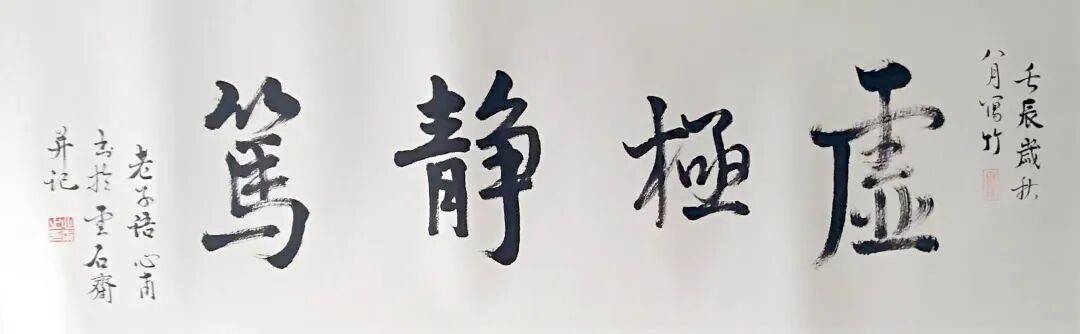 壬辰歲秋
八月寫竹
虛極靜篤
老子語 心甫
書於雲石齋
并记